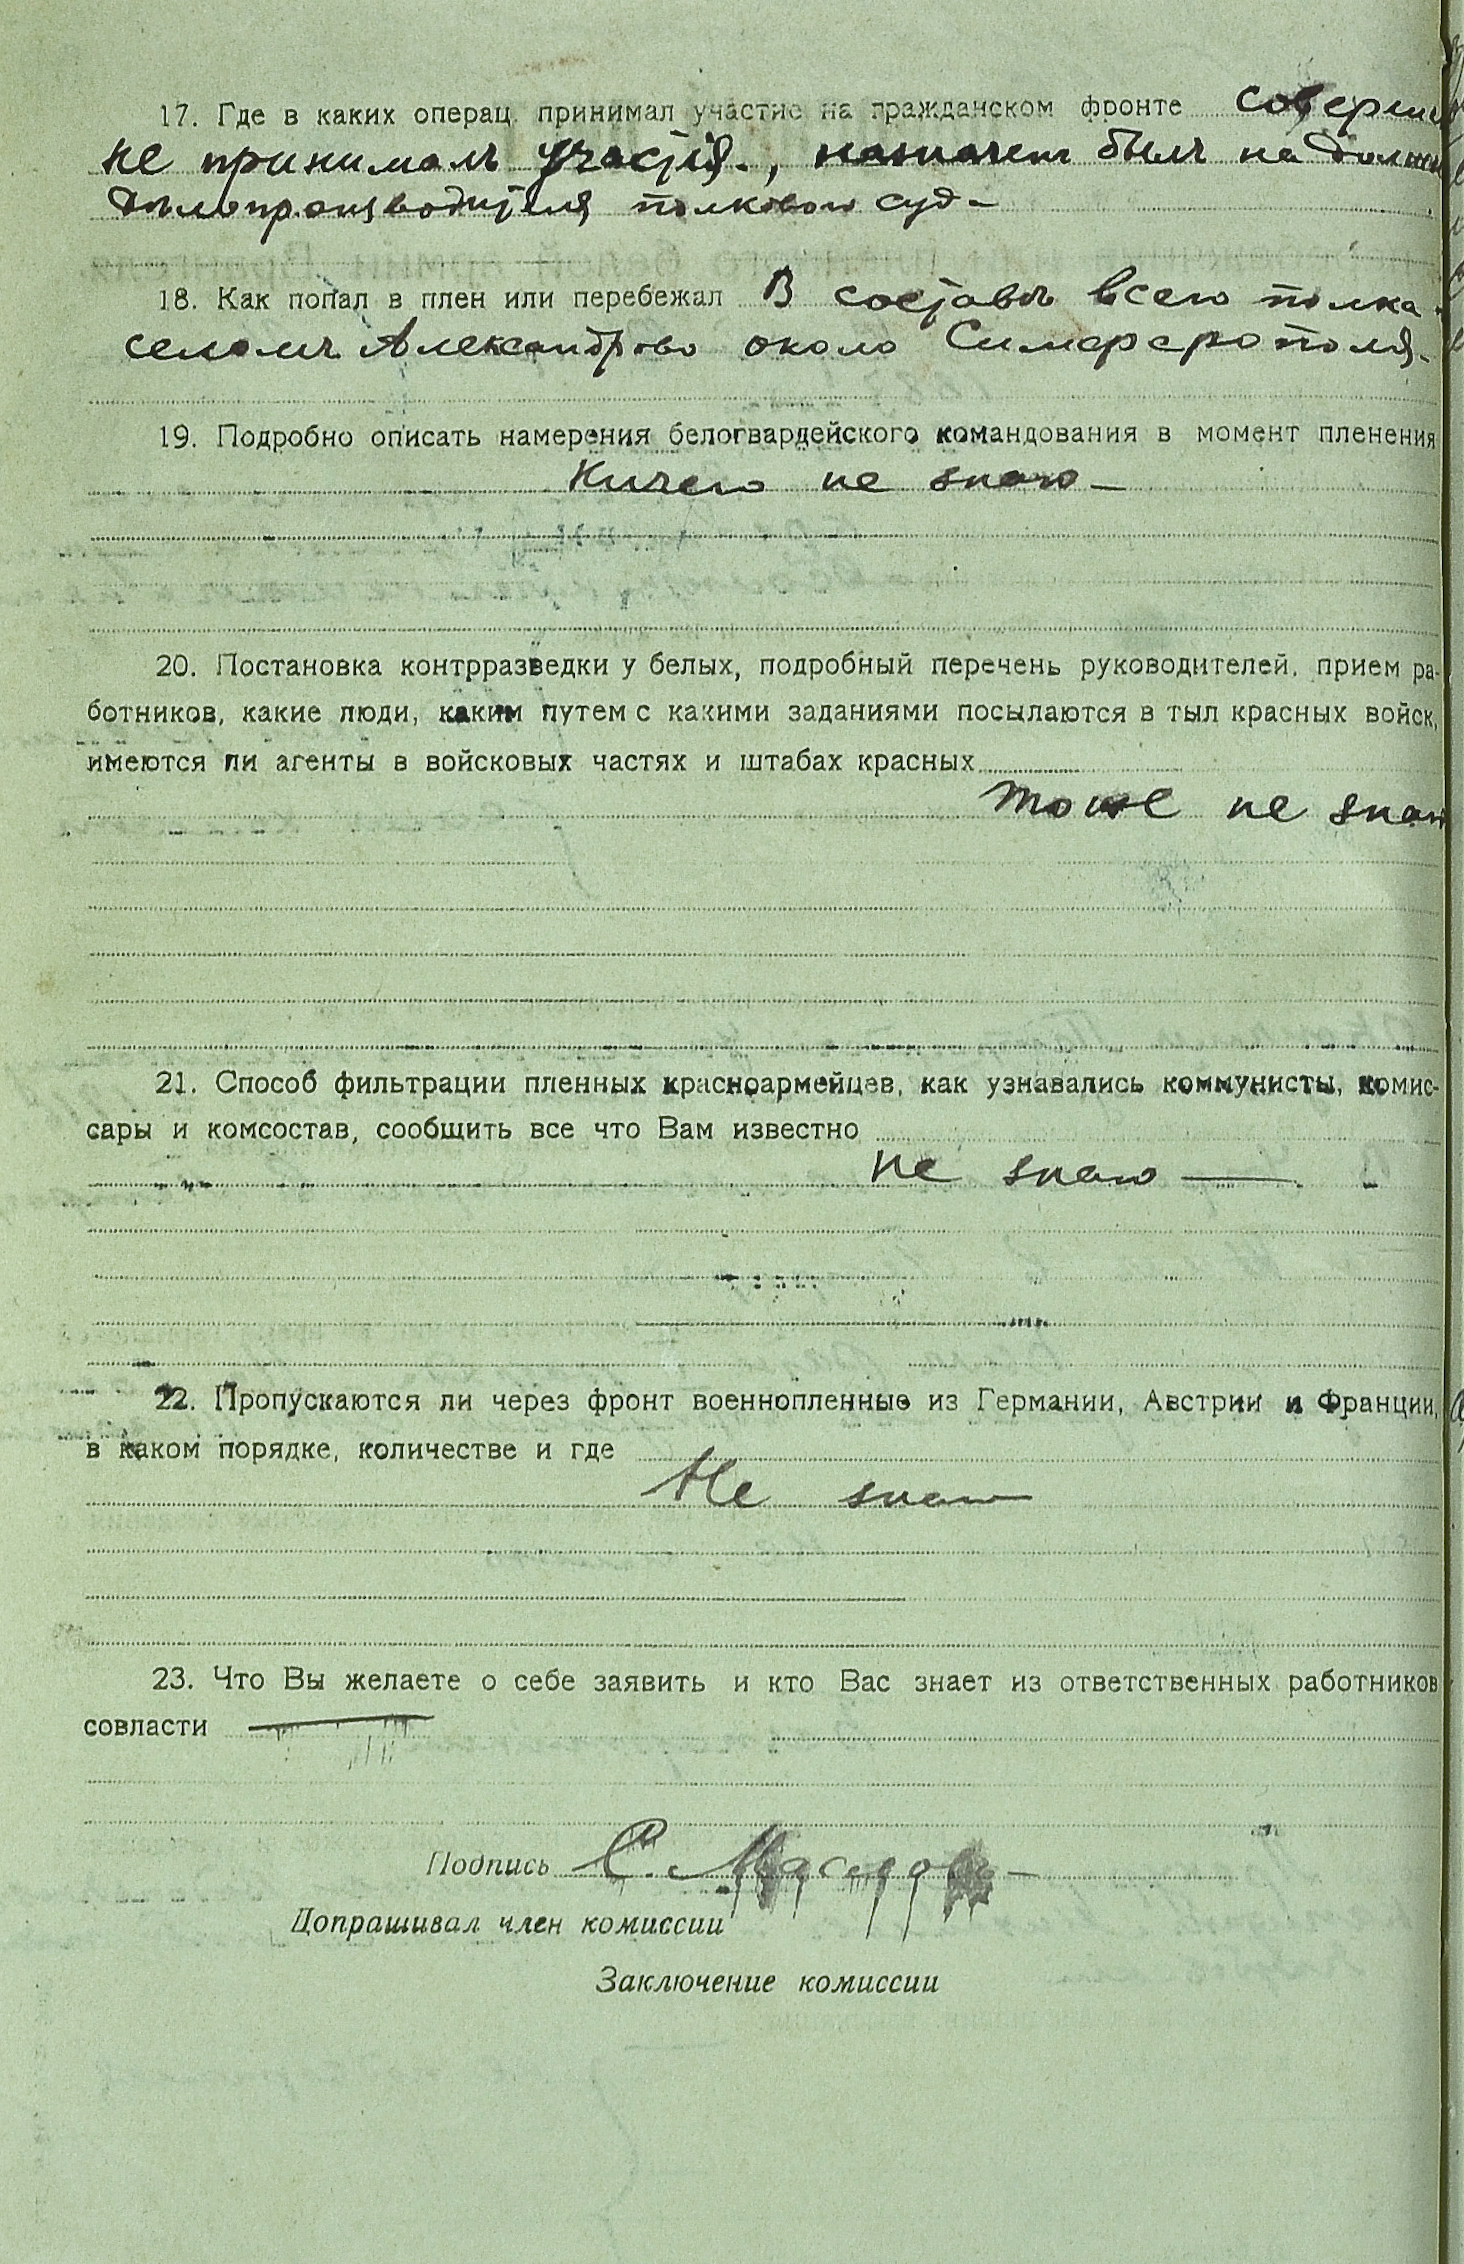 17. Где в каких операц. принимал участие на гражданском фронте соверше
не принималъ участія., назначен былъ на должн
дѣлопроизводителя полковой суд-
18. Как попал в плен или перебежал В составѣ всего полка
селомъ Александрово около Симферополя.
19. Подробно описать намерения белогвардейского командования в момент пленения
Ничего не знаю
20. Постановка контрразведки у белых, подробный перечень руководителей, прием ра-
ботников, какие люди, каким путем с какими заданиями посылаются в тыл красных войск,
имеются ли агенты в войсковых частях и штабах красных
тоже не знаю
21. Способ фильтрации пленных красноармейцев, как узнавались коммунисты, комис-
сары и комсостав, сообщить все что Вам известно
не знаю
22. Пропускаются ли через фронт военнопленные из Германии, Австрии и Франции,
в каком порядке, количестве и где
Не знаю
23. Что Вы желаете о себе заявить и кто Вас знает из ответственных работников
совласти
Подпись С. Масловъ
Допрашивал член комиссии
Заключение комиссии